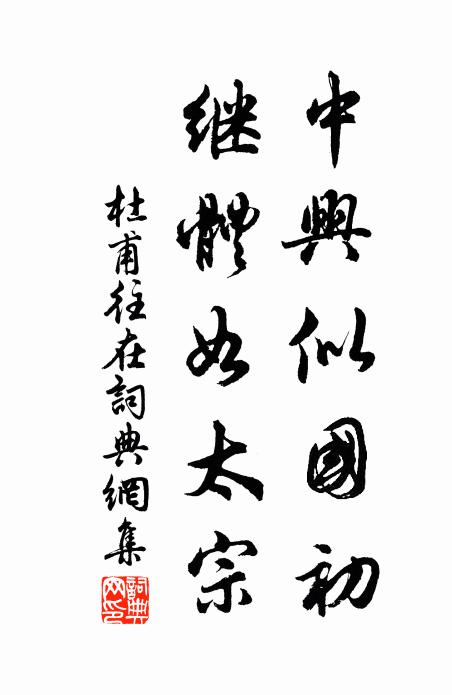 中興似國初
继體如太宗
杜甫往在詞典網集
詞典網印